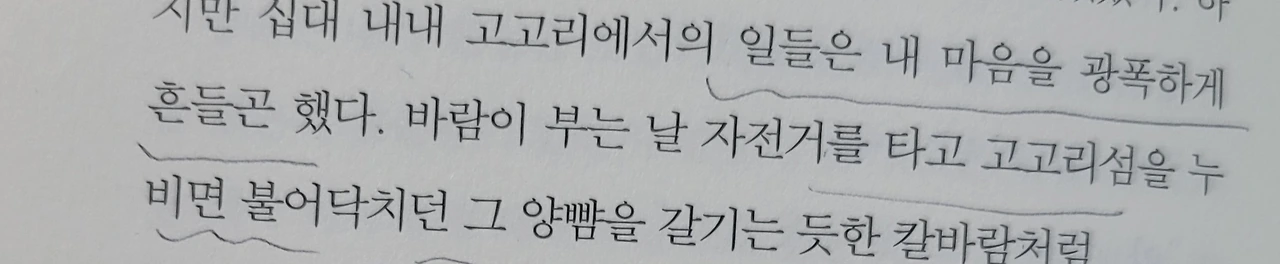 지만 십대 내내 고고리에서의 일들은 내 마음을 광폭하게
흔들곤 했다. 바람이 부는 날 자전거를 타고 고고리섬을 누
비면 불어닥치던 그 양뺨을 갈기는 듯한 칼바람처럼